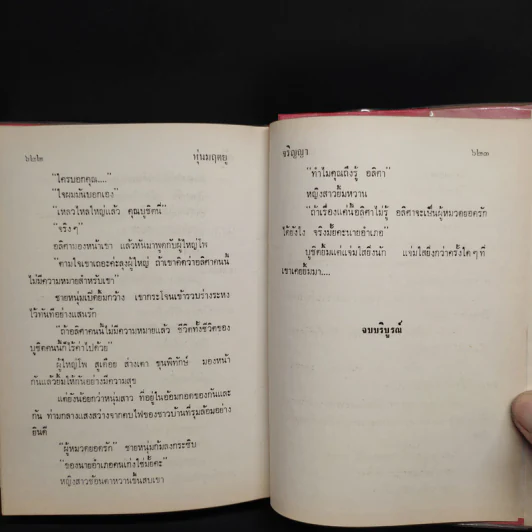 ๖๒๒ หุ่นมฤตยู
"ใครบอกคุณ...."
"ใจผมมันบอกเอง"
"เหลวไหลใหญ่แล้ว คุณบูชิตนี่"
"จริงๆ"
อลิศามองหน้าเขา แล้วหันมาพูดกับผู้ใหญ่โพ
"ตามใจเขาเถอะค่ะลุงผู้ใหญ่ ถ้าเขาคิดว่าอลิศาคนนี้
ไม่มีความหมายสำหรับเขา"
ชายหนุ่มเบิ่งยิ้มกว้าง เขากระโจนเข้ารวบร่างระหง
ไว้ทันทีอย่างแสนรัก
"ถ้าอลิศาคนนี้ไม่มีความหมายแล้ว ชีวิตทั้งชีวิตของ
บูชิตคนนี้ก็ไร้ค่าไปด้วย"
ผู้ใหญ่โพ สุเทือย ส่างเดา ขุนพิทักษ์ มองหน้า
กันแล้วยิ้มให้กันอย่างมีความสุข
แต่ยังน้อยกว่าหนุ่มสาว ที่อยู่ในอ้อมกอดของกันและ
กัน ท่ามกลางแสงสว่างจากคบไฟของชาวบ้านที่รุมล้อมอย่าง
ยินดี
"ผู้หมวดยอดรัก" ชายหนุ่มก้มลงกระซิบ
"ของนายอำเภอคนเก่งใช่มั้ยคะ"
หญิงสาวช้อนตาหวานขึ้นสบเขา
จริญญา ๖๒๓
"ทำไมคุณถึงรู้ อลิศา"
หญิงสาวยิ้มหวาน
"ถ้าเรื่องแค่นี้อลิศาไม่รู้ อลิศาจะเป็นผู้หมวดยอดรัก
ได้ยังไง จริงมั้ยคะนายอำเภอ"
บูชิตยิ้มแค่แจ่มใสยิ่งนัก แจ่มใสยิ่งกว่าครั้งใดๆ ที่
เขาเคยยิ้มมา....
จบบริบูรณ์